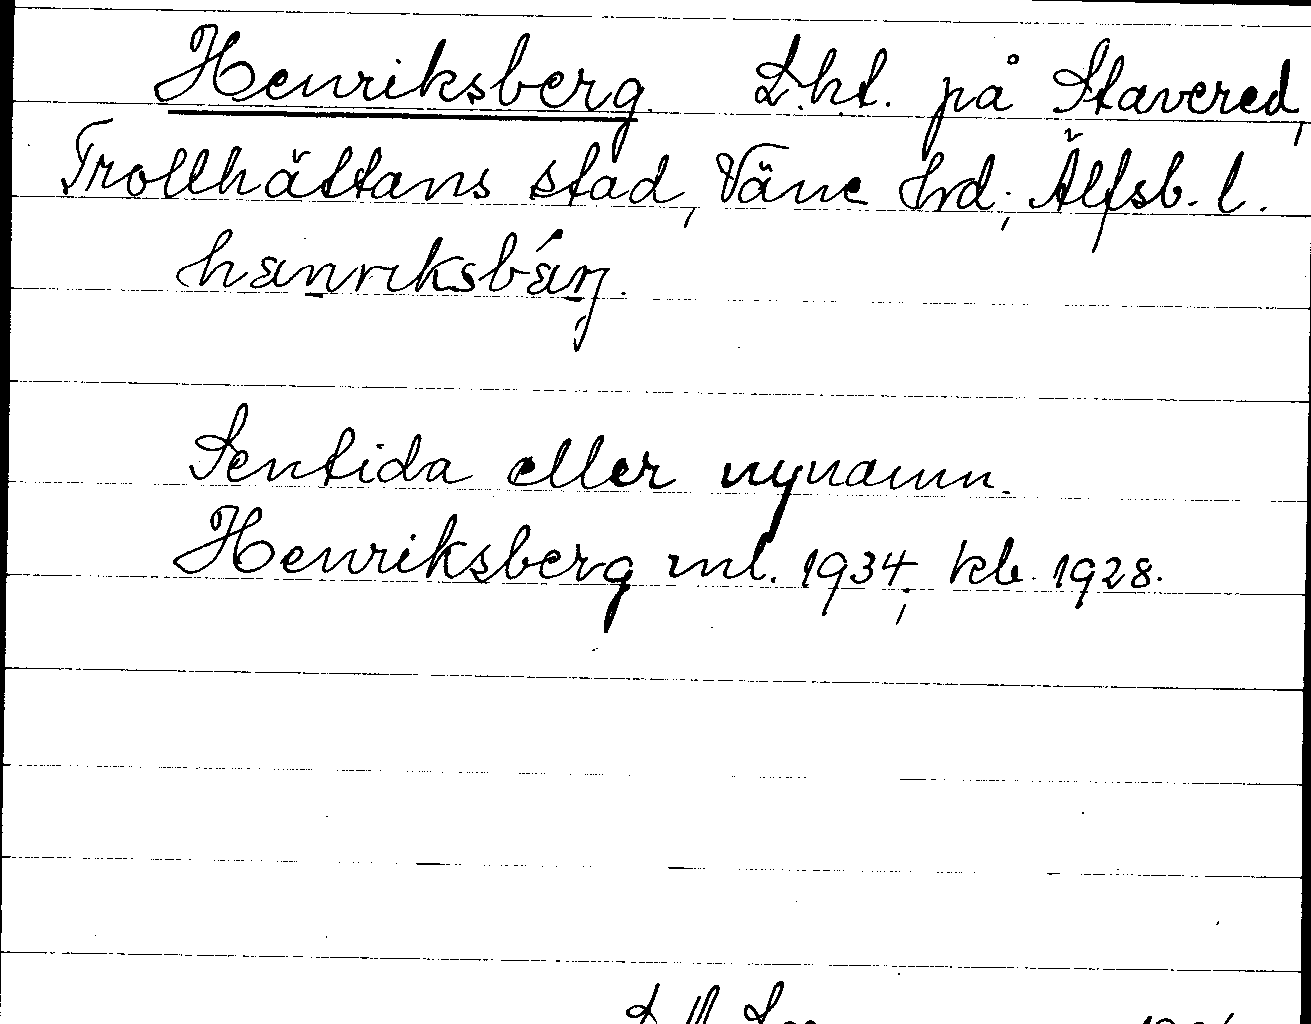 Henriksberg. L.ht. på Stavered,
Trollhättans stad, Väne hrd; Älfsb. l.
hänriksbárj.
Sentida eller nynamn.
Henriksberg ml. 1934; kb. 1928.